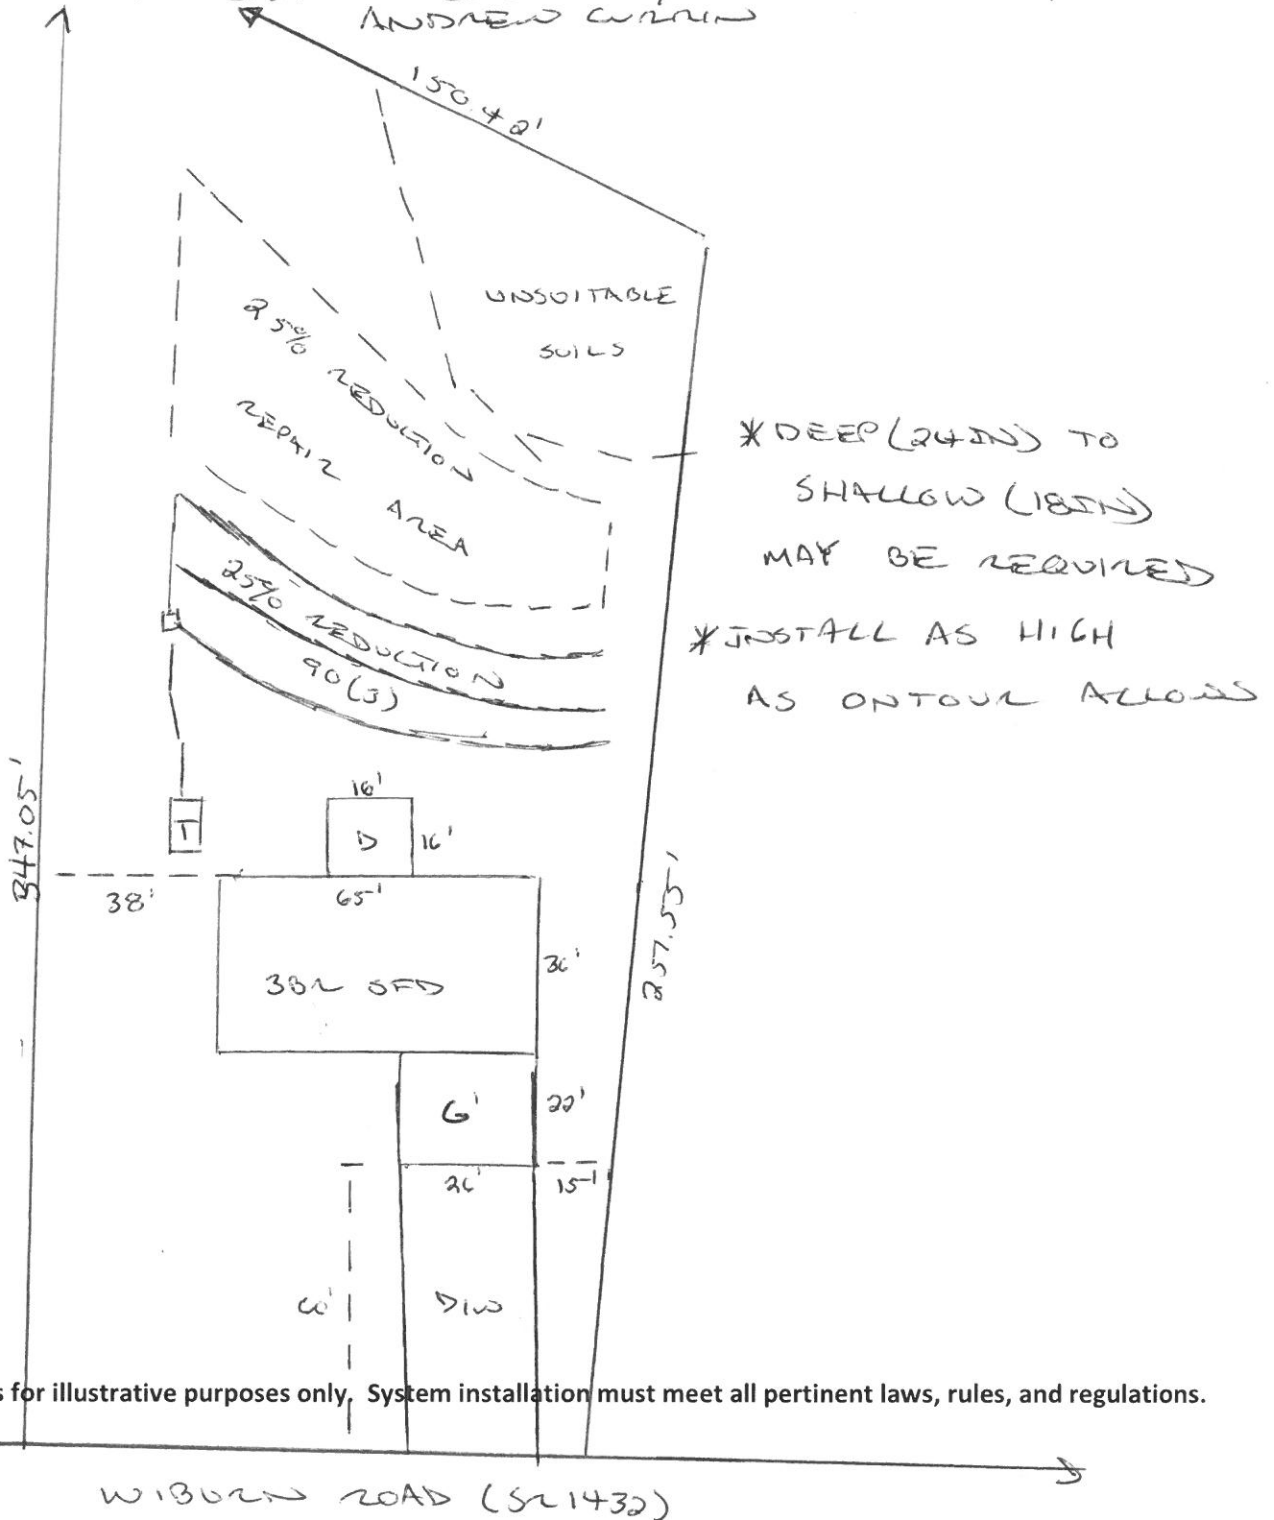 ANDREW CURRIN
150.42'
UNSUITABLE
SOILS
25% REDUCTION
REPAIR
AREA
*DEEP (24IN) TO
SHALLOW (18IN)
MAY BE REQUIRED
*INSTALL AS HIGH
AS ONTOUR ALLOWS
25% REDUCTION
90(3)
347.05'
16'
T
D
16'
38'
65'
257.55'
3BR SFD
G
22'
26'
15'
60'
D/W
s for illustrative purposes only. System installation must meet all pertinent laws, rules, and regulations.
WIBURN ROAD (SR1432)